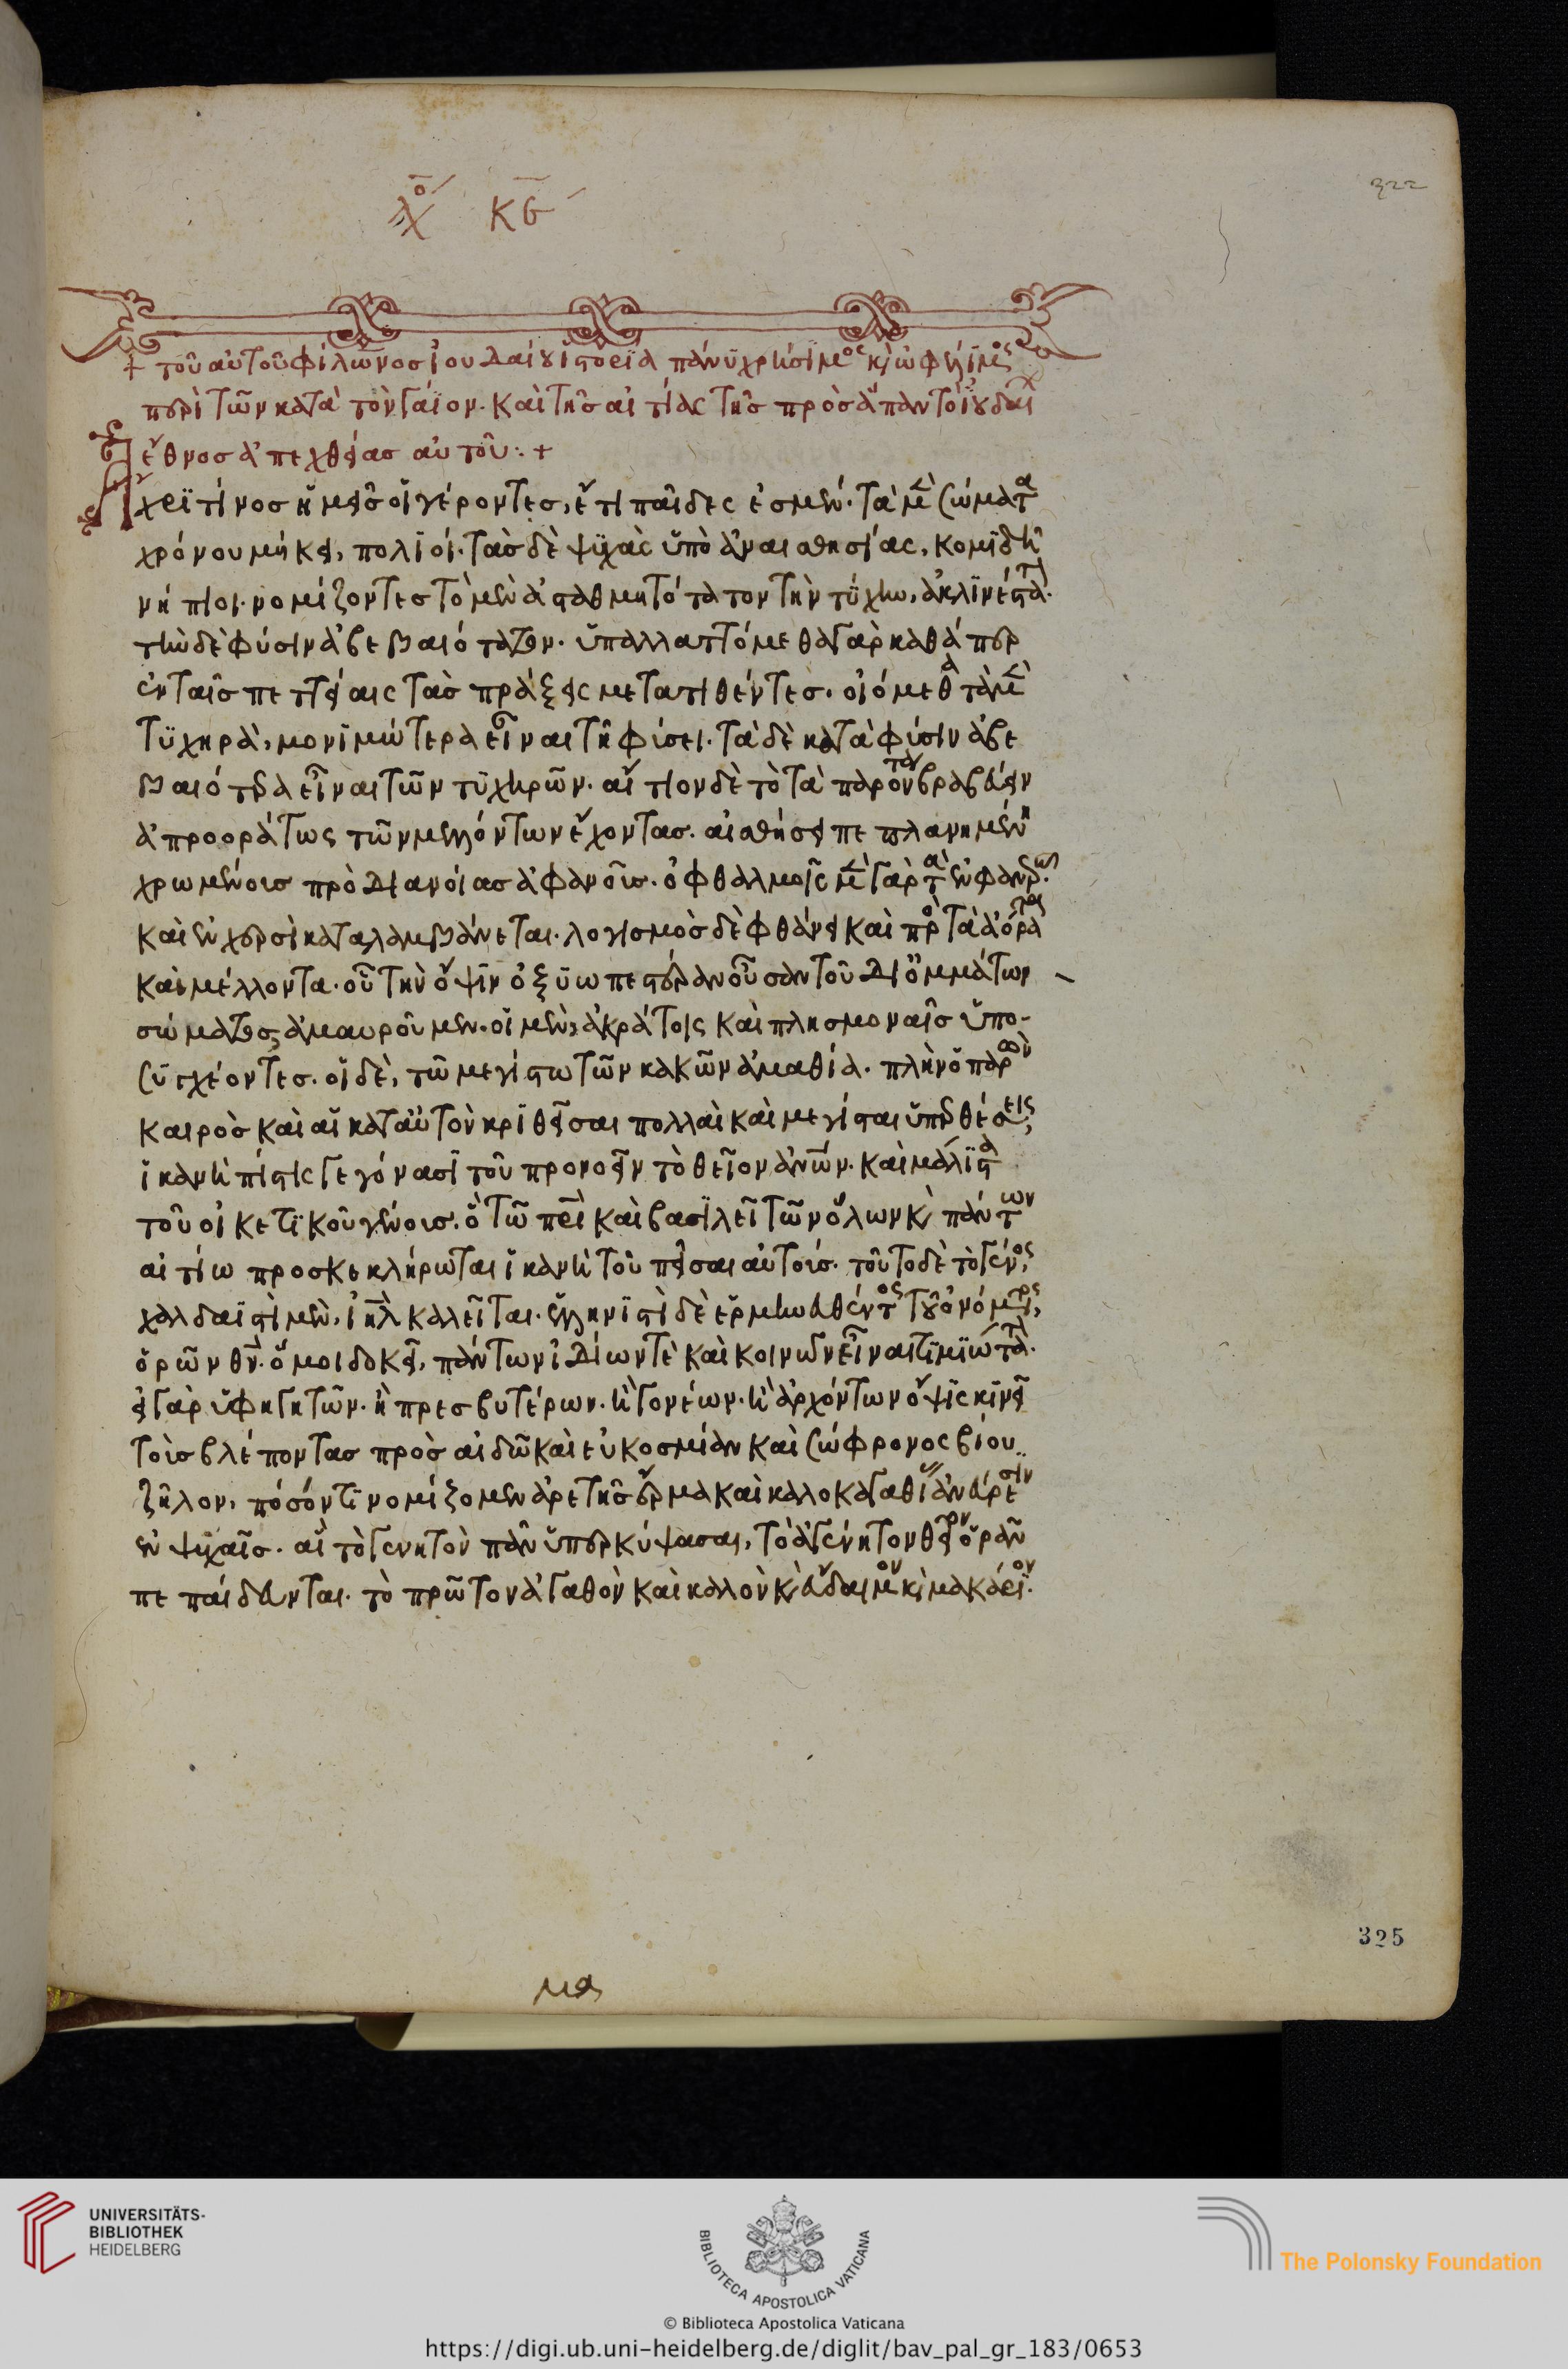 322
λο κϛ
+ τοῦ αὐτοῦ φίλωνος ἰουδαίου ἱστορία πάνυ χρήσιμος καὶ ὠφέλιμος
περὶ τῶν κατὰ τὸν γάϊον. καὶ τῆς αἰτίας τῆς πρὸς ἅπαν τὸ ἰουδαί
ἔθνος ἀπεχθείας αὐτοῦ : +
Ἄχρι τίνος ἡμεῖς οἱ γέροντες, ἔτι παῖδες ἐσμέν. τὰ μὲν σώματα
χρόνου μήκει, πολιοί. τὰς δὲ ψυχὰς ὑπὸ ἀναισθησίας, κομιδῆ
νήπιοι. νομίζοντες τὸ μὲν ἀσταθμητότατον τὴν τύχην, ἀκλινέστατ.
τὴν δὲ φύσιν ἀβεβαιότατον. ὑπαλλαττόμεθα γὰρ καθάπερ
ἐν ταῖς πεττείαις τὰς πράξεις μετατιθέντες. οἰόμεθα τὰ μὲν
τυχηρὰ, μονιμώτερα εἶναι τῆ φύσει. τὰ δὲ κατὰ φύσιν ἀβε
βαιότερα εἶναι τῶν τυχηρῶν. αἴτιον δὲ τὸ τὰ παρόντα βραβεύειν
ἀπροοράτως τῶν μελλόντων ἔχοντας. αἰσθήσει πεπλανημένη
χρωμένοις πρὸ διανοίας ἀφανοῖς. ὀφθαλμοῖς μὲν γὰρ τὰ ἐν φανερῶ.
καὶ ἐν χερσὶ καταλαμβάνεται. λογισμὸς δὲ φθάνει καὶ πρὸ τὰ ἀόρατα
καὶ μέλλοντα. οὗ τὴν ὄψιν ὀξυωπεστέραν οὖσαν τοῦ δι ὀμμάτων
σώματος, ἀμαυροῦμεν. οἱ μὲν, ἀκράτοις καὶ πλησμοναῖς ὑπο-
συγχέοντες. οἱ δὲ, τῶ μεγίστω τῶν κακῶν ἀμαθία. πλὴν ὁ παρὼν
καιρὸς καὶ αἱ κατ αὐτὸν κριθεῖσαι πολλαὶ καὶ μεγίσται ὑποθέσεις,
ἱκανὴ πίστις γεγόνασι τοῦ προνοεῖν τὸ θεῖον ἀνων. καὶ μάλιστα
τοῦ οἰκετικοῦ γένοις. ὃ τῶ πρι καὶ βασιλεῖ τῶν ὅλων καὶ πάντων
αἰτίω προσκεκλήρωται ἱκανὴ τοῦ πεῖσαι αὐτοίς. τοῦτο δὲ τὸ γένος,
χαλδαϊστὶ μὲν, ιηλ καλεῖται. ἑλληνιστὶ δὲ ἑρμηνευθέντος τοῦ ὀνόματος,
ὁρῶν θν. ὅ μοι δοκεῖ, πάντων ἰδίων τὲ καὶ κοινῶν εἶναι τιμιώτατ.
εἰ γὰρ ὑφηγητῶν. ἢ πρεσβυτέρων. ἢ γονέων. ἢ ἀρχόντων ὄψις κινεῖ
τοὶς βλέποντας πρὸς αἰδῶ καὶ εὐκοσμίαν καὶ σώφρονος βίου
ζῆλον, πόσόν τι νομίζομεν ἀρετῆς ἕρμα καὶ καλοκαγαθίαν εὑρεσιν
ἐν ψυχαῖς. αἳ τὸ γενητὸν πᾶν ὑπερκύψασαι, τὸ ἀγένητον θεῖον ὁρᾶν
πεπαίδευνται. τὸ πρῶτον ἀγαθὸν καὶ καλὸν καὶ εὔδαιμον καὶ μακάριον.
μα
325
UNIVERSITÄTS-
BIBLIOTHEK
HEIDELBERG
BIBLIOTECA APOSTOLICA VATICANA
The Polonsky Foundation
© Biblioteca Apostolica Vaticana
https://digi.ub.uni-heidelberg.de/diglit/bav_pal_gr_183/0653